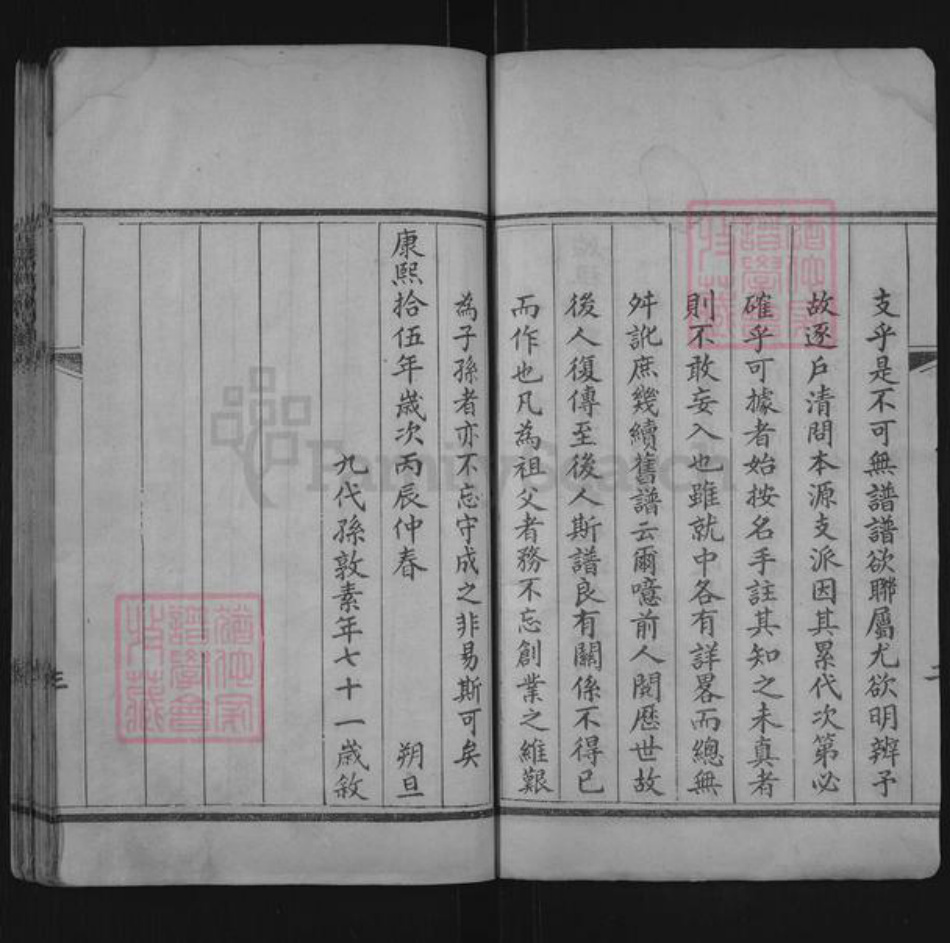 支乎是不可無譜譜欲聯屬尤欲明辨予
故逐戶清問本源支派因其累代次第必
確乎可據者始按名手註其知之未真者
則不敢妄入也雖就中各有詳畧而總無
舛訛庶幾續舊譜云爾噫前人閱歷世故
後人復傳至後人斯譜良有關係不得已
而作也凡為祖父者務不忘創業之維艱
為子孫者亦不忘守成之非易斯可矣
康熙拾伍年歲次丙辰仲春 朔旦
九代孫敦素年七十一歲敘
FamilySearch